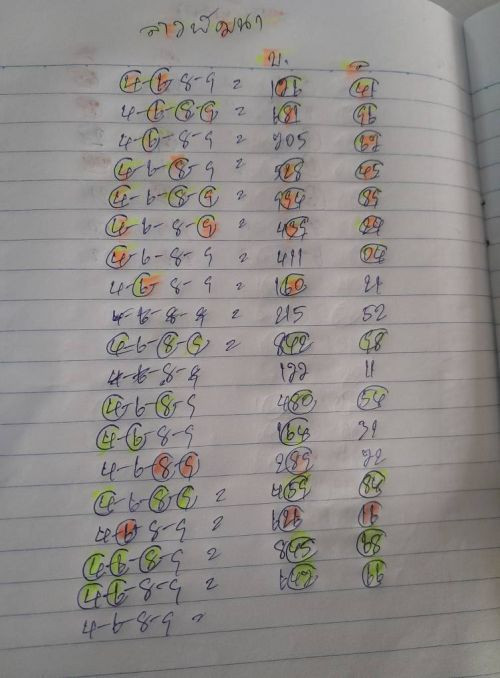 ลาวพัฒนา
บ. ล
4-6-8-9 = 126 41
4-6-8-9 = 681 96
4-6-8-9 = 205 69
4-6-8-9 = 528 45
4-6-8-9 = 994 89
4-6-8-9 = 439 29
4-6-8-9 = 411 04
4-6-8-9 = 160 21
4-6-8-9 = 215 52
4-6-8-9 = 842 98
4-6-8-9 122 11
4-6-8-9 480 54
4-6-8-9 164 31
4-6-8-9 289 72
4-6-8-9 = 459 84
4-6-8-9 = 626 16
4-6-8-9 = 845 68
4-6-8-9 = 642 66
4-6-8-9 =